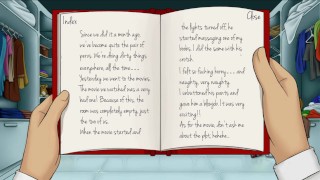 Index
Close
Since we did it a month ago,
we've become quite the pair of
pervs. We're doing dirty things
everywhere, all the time......
Yesterday we went to the movies.
The movie we watched was a very
bad one! Because of this, the
room was completely empty, just
the two of us.
When the movie started and
the lights turned off, he
started massaging one of my
boobs. I did the same with his
crotch.
I felt so fucking horny...... and
naughty, very naughty.
I unbuttoned his pants and
gave him a blowjob! It was very
exciting!!
As for the movie, don't ask me
about the plot, hehehe...